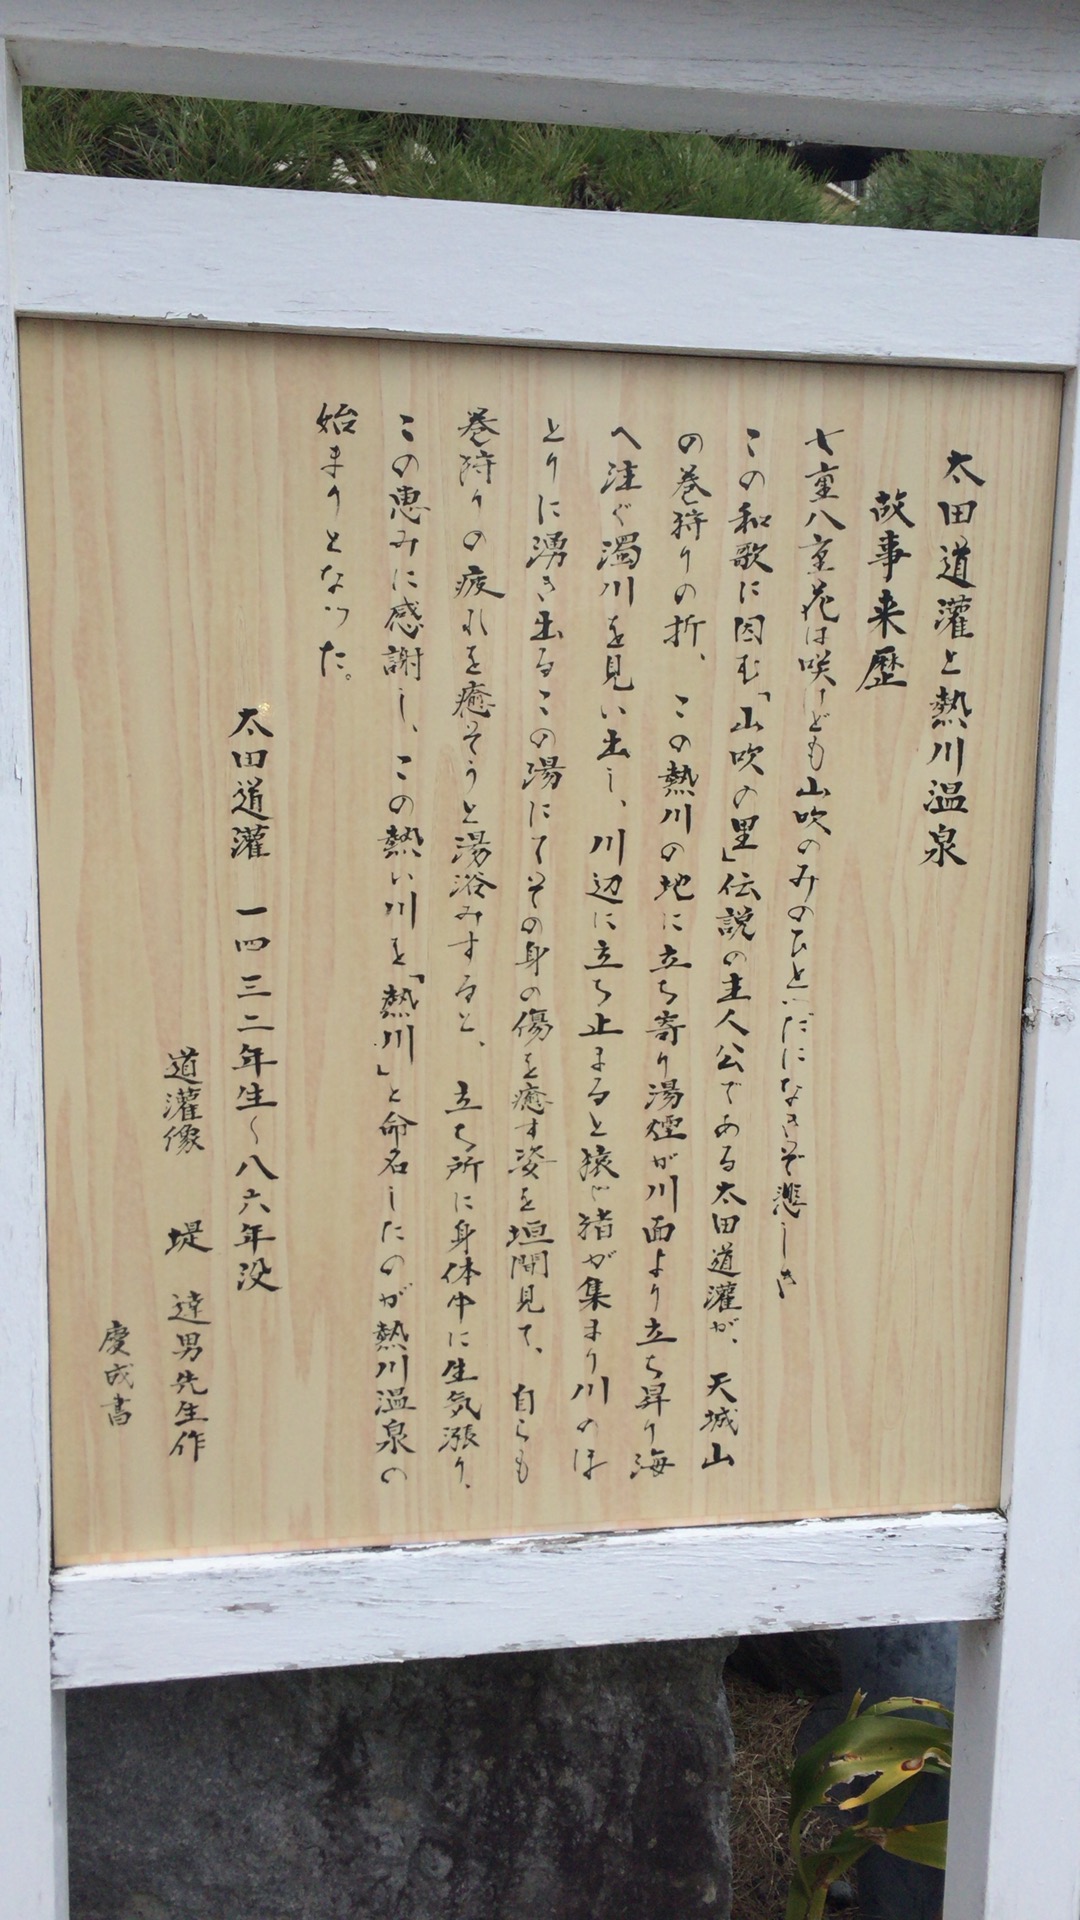 太田道灌と熱川温泉
故事来歴
七重八重花は咲けども山吹のみのひとつだになきぞ悲しき
この和歌に因む「山吹の里」伝説の主人公である太田道灌が、天城山
の巻狩りの折、この熱川の地に立ち寄り湯煙が川面より立ち昇り海
へ注ぐ濁川を見い出し、川辺に立ち止まると猿や猪が集まり川のほ
とりに湧き出るこの湯にてその身の傷を癒す姿を垣間見て、自らも
巻狩りの疲れを癒そうと湯浴みすると、立ち所に身体中に生気漲り、
この恵みに感謝し、この熱い川を「熱川」と命名したのが熱川温泉の
始まりとなった。
太田道灌 一四三二年生〜八六年没
道灌像 堤 達男先生作
慶成書